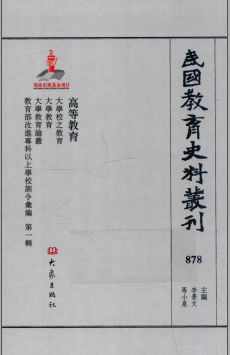 民國教育史料叢刊
878
主编
李景文
馬小泉
國家出版基金項目
高等教育
大學校之教育
大學教育
大學教育論叢
教育部改進專科以上學校訓令彙編 第一輯
大象出版社